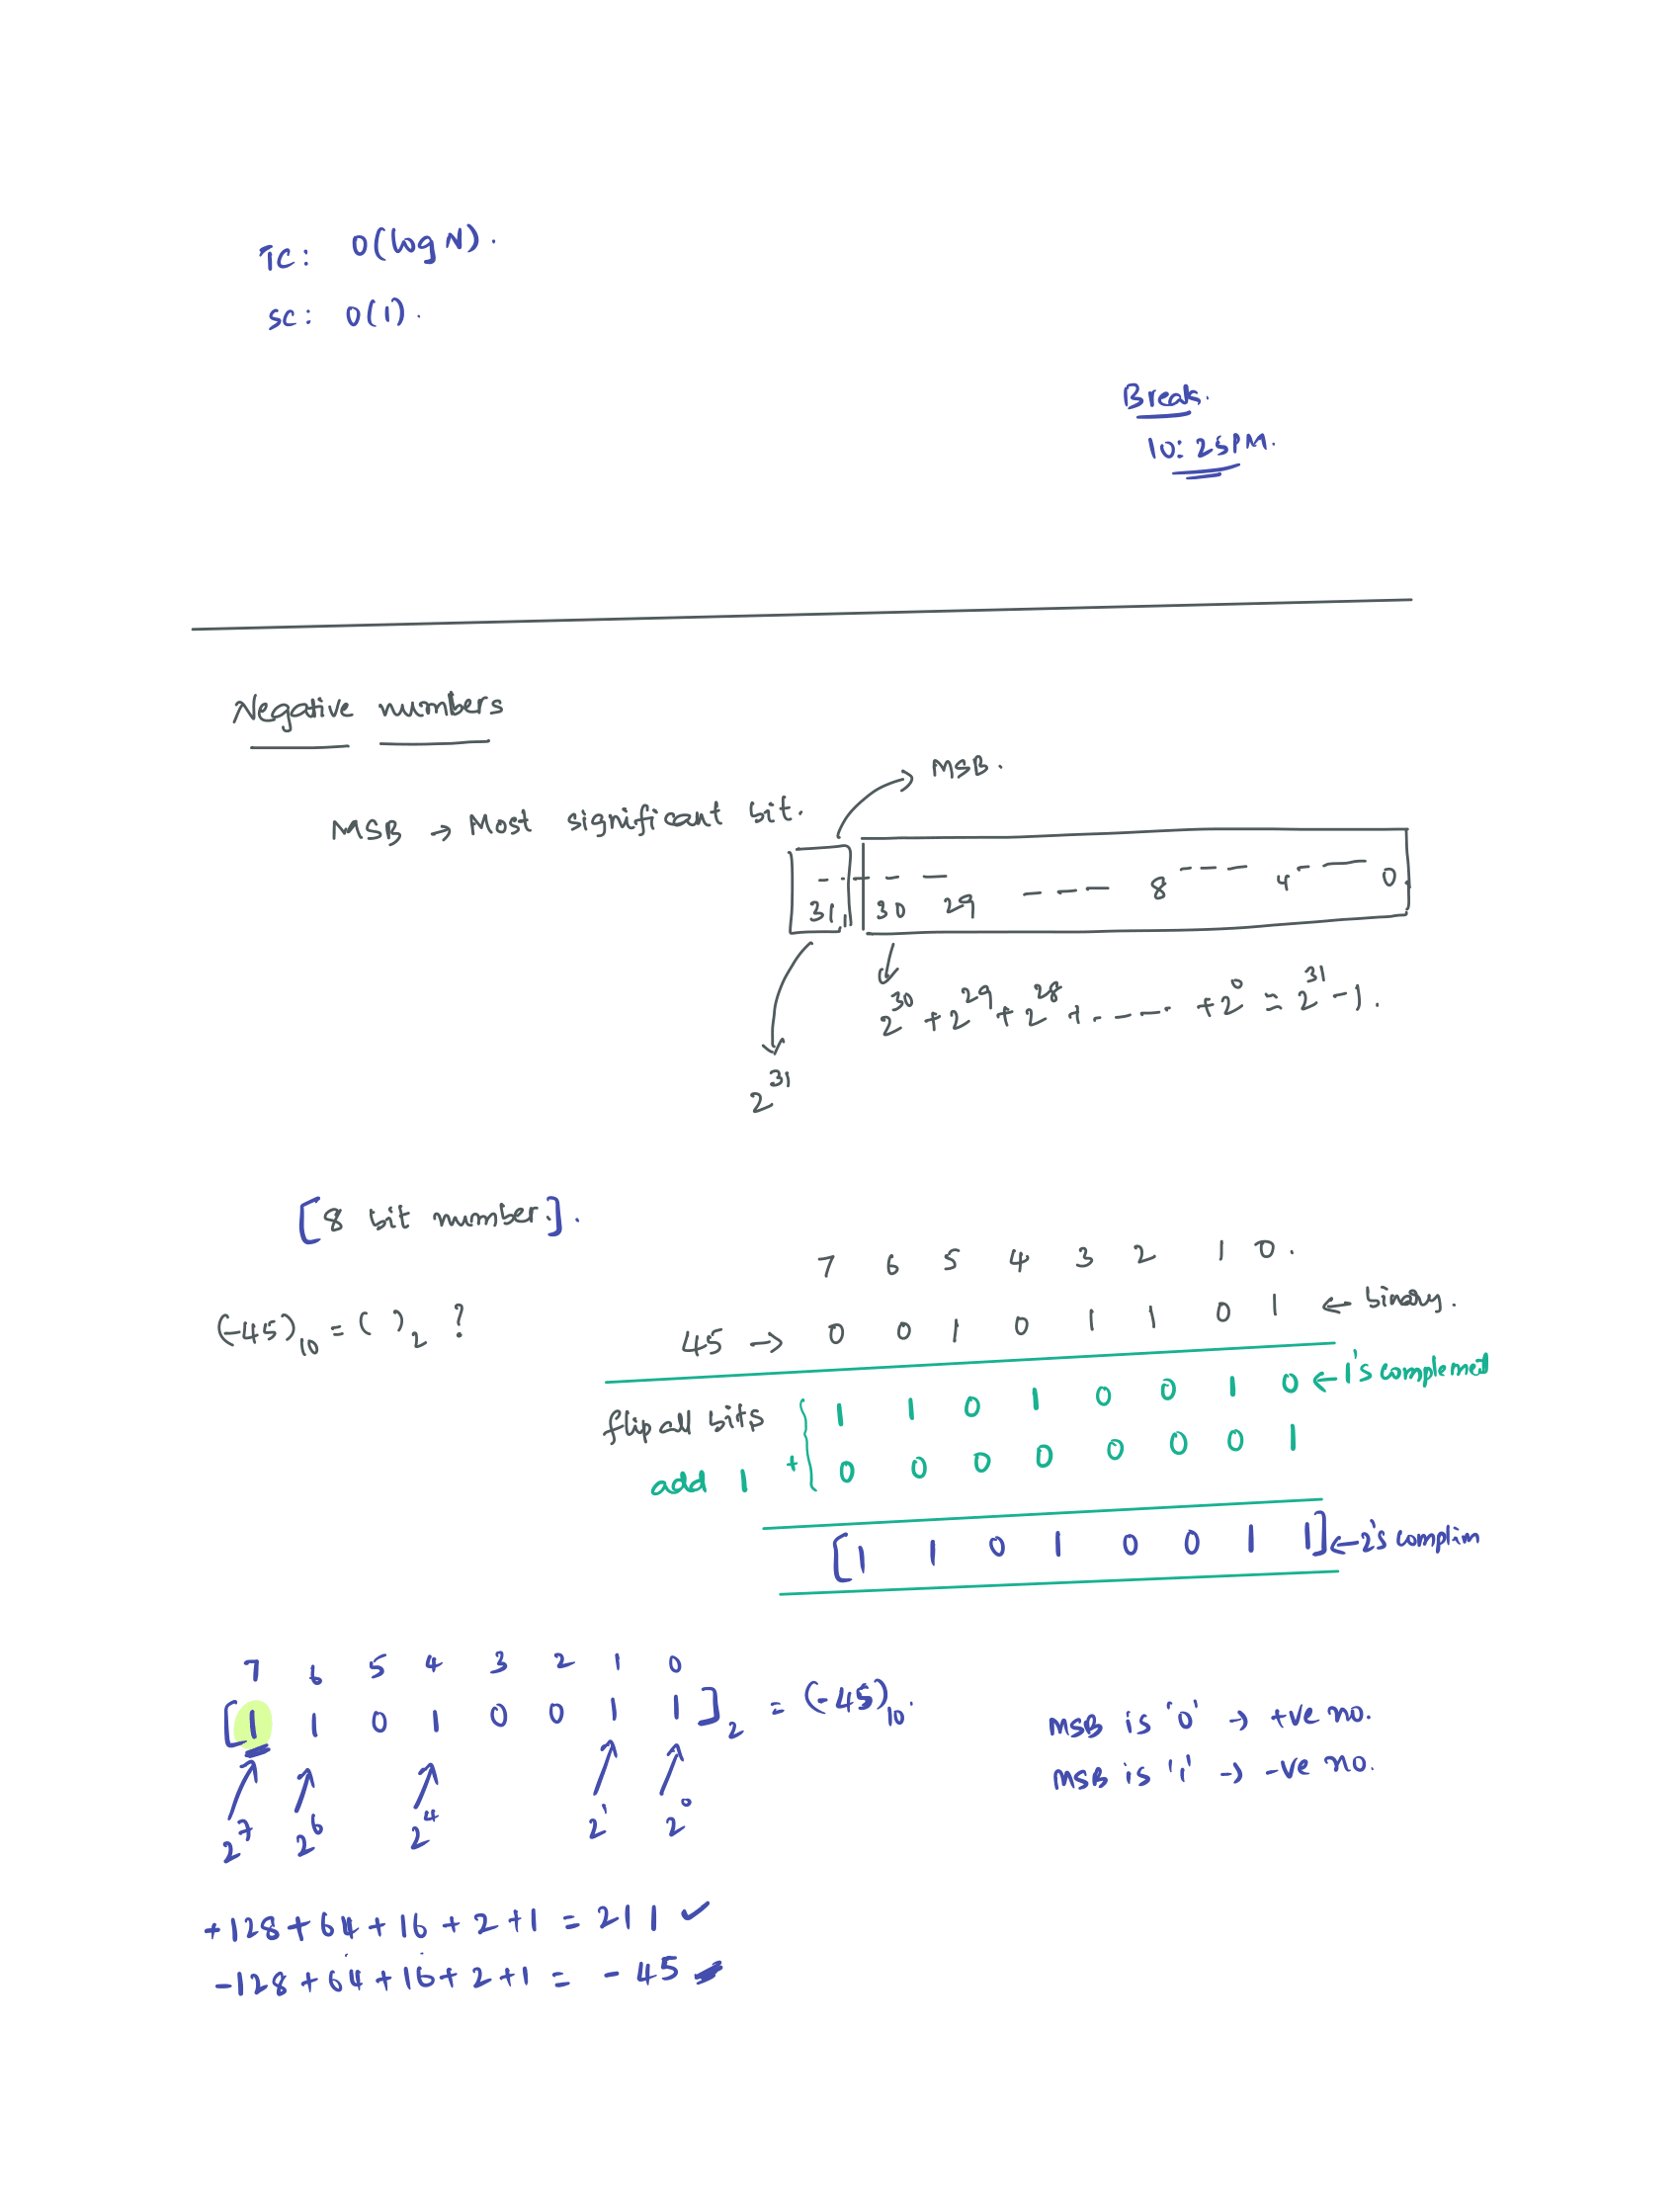 TC: O(log N).
SC: O(1).
Break.
10:25PM.
Negative numbers
MSB → Most significant bit.
MSB.
31 30 29 ---- 8 ---- 4 ---- 0
2^30 + 2^29 + 2^28 + ----- + 2^0 = 2^31 - 1.
2^31
[8 bit number.].
7 6 5 4 3 2 1 0.
(-45)10 = ( )2 ?
45 → 0 0 1 0 1 1 0 1 ← binary.
flip all bits { 1 1 0 1 0 0 1 0 ← 1's complemet
add 1 + 0 0 0 0 0 0 0 1
[1 1 0 1 0 0 1 1] ← 2's complim
7 6 5 4 3 2 1 0
[1 1 0 1 0 0 1 1]2 = (-45)10.
2^7 2^6 2^4 2^1 2^0
MSB is '0' → +ve no.
MSB is '1' → -ve no.
+128+64+16+2+1 = 211 ✓
-128+64+16+2+1 = -45